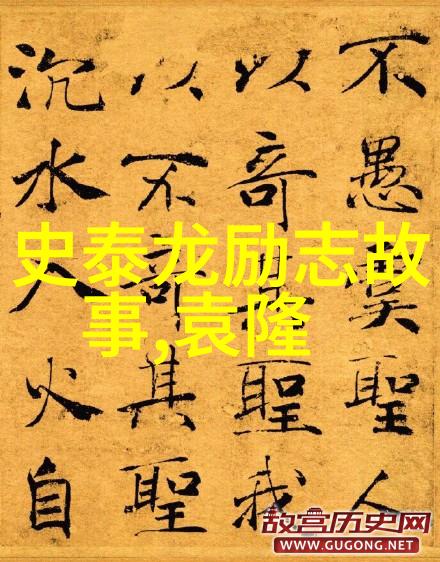 不愚聖人
以奇聖我
以不奇其聖
沉水入火自
史泰龙励志故
事,袁隆
故宫历史网
WWW.GUGONG.NET